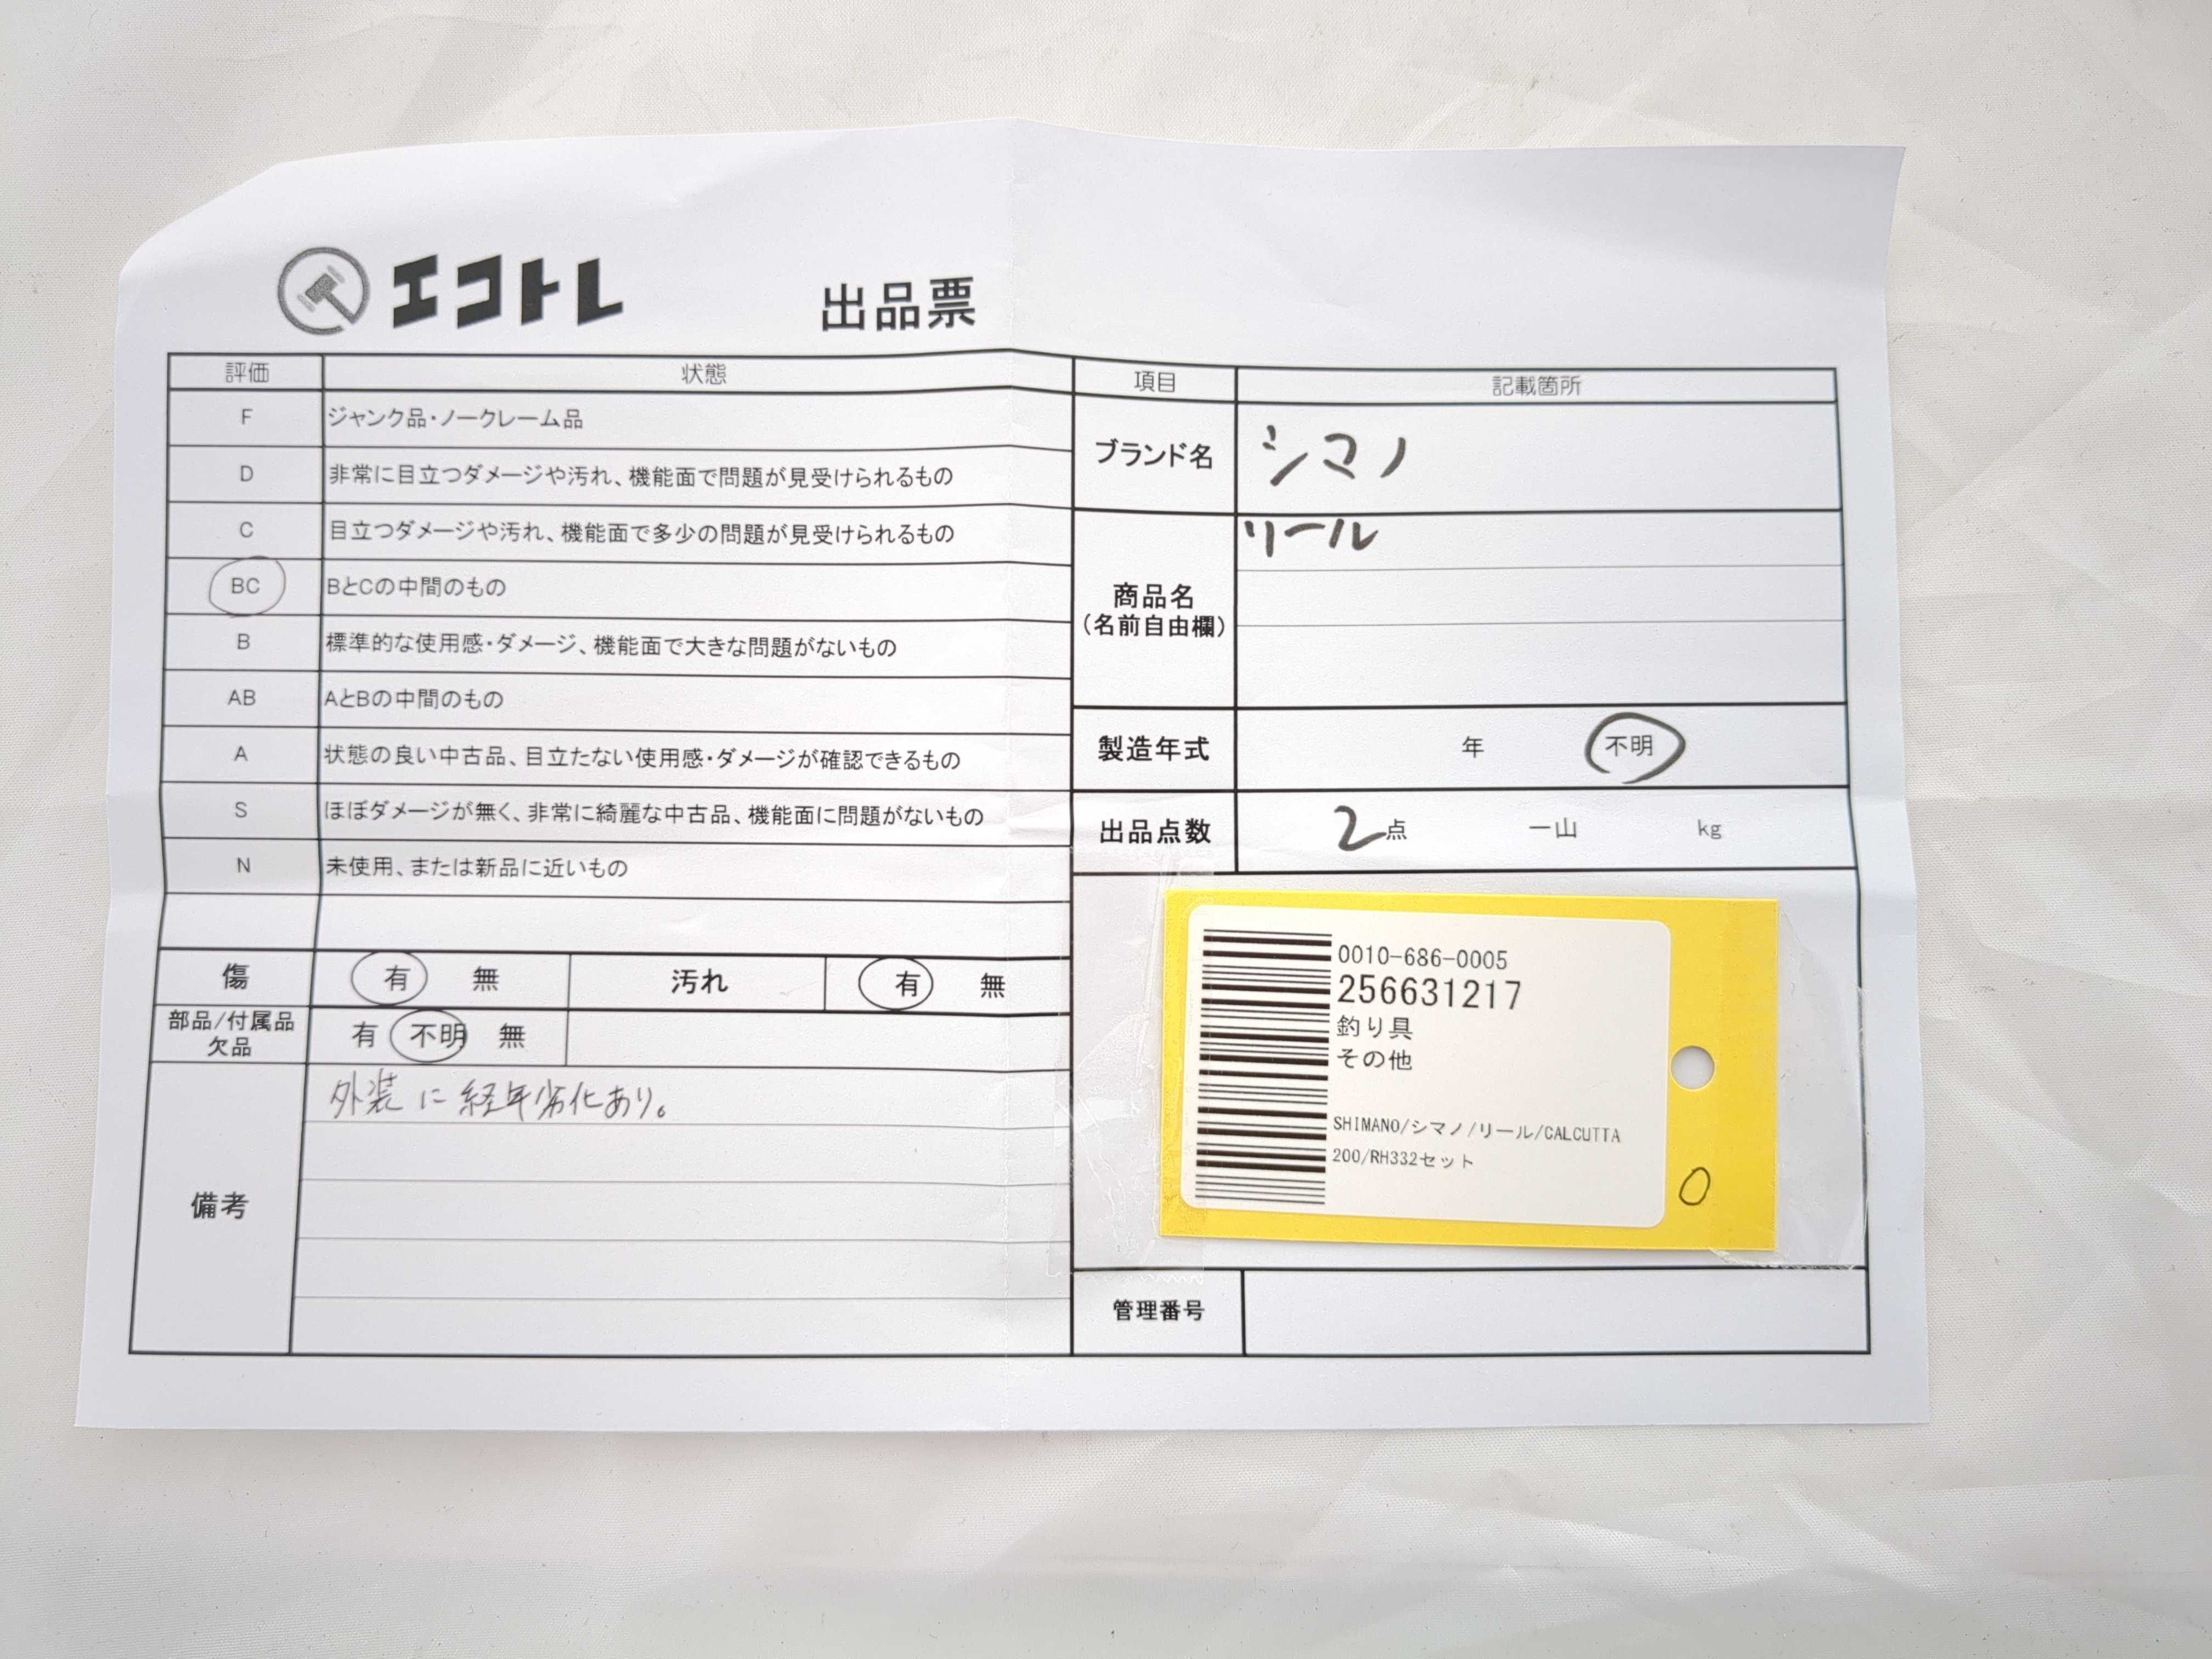 エコトレ 出品票
評価 状態
F ジャンク品・ノークレーム品
D 非常に目立つダメージや汚れ、機能面で問題が見受けられるもの
C 目立つダメージや汚れ、機能面で多少の問題が見受けられるもの
BC BとCの中間のもの
B 標準的な使用感・ダメージ、機能面で大きな問題がないもの
AB AとBの中間のもの
A 状態の良い中古品、目立たない使用感・ダメージが確認できるもの
S ほぼダメージが無く、非常に綺麗な中古品、機能面に問題がないもの
N 未使用、または新品に近いもの
傷 有 無 汚れ 有 無
部品/付属品
欠品
有 不明 無
備考
外装に経年劣化あり。
項目 記載箇所
ブランド名 シマノ
商品名
(名前自由欄)
リール
製造年式 年 不明
出品点数 2点 一山 kg
0010-686-0005
256631217
釣り具
その他
SHIMANO/シマノ/リール/CALCUTTA
200/RH332セット
0
管理番号